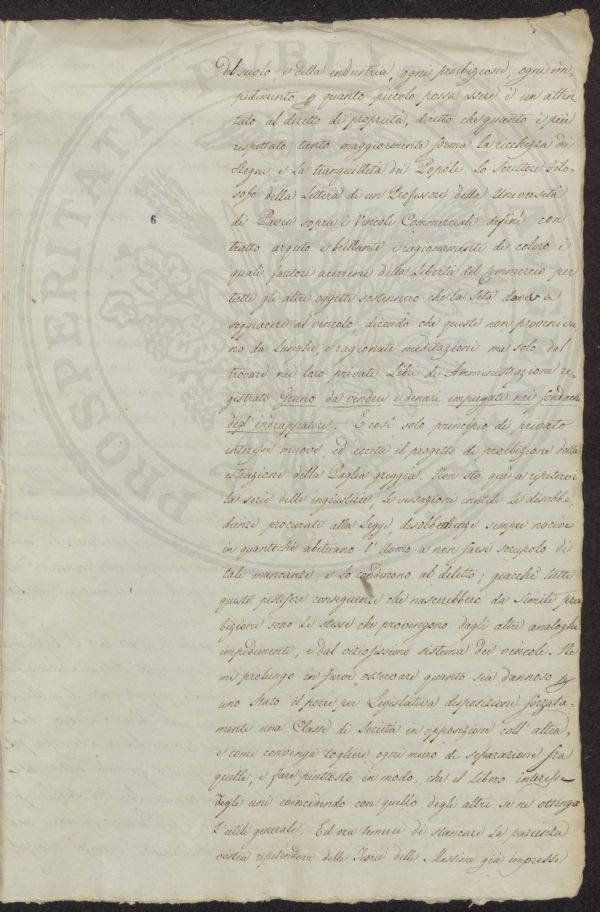 del suolo e della industria, ogni proibizione, ogni im-
pedimento p quanto piccolo possa essere è un atten-
tato al diritto di proprietà, diritto che quanto è più
rispettato tanto maggiormente forma la ricchezza dei
Regni, e la tranquillità dei Popoli. Lo Scrittore Filo-
sofo della Lettera di un Professore della Università
di Pavia sopra i Vincoli Commerciali definì con
tratto arguto e brillante i ragionamenti di coloro i
quali fautori acerrimi della Libertà del Commercio per
tutti gli altri oggetti sostennero che la Seta doveva
soggiacere al vincolo, dicendo che questi non proveniva-
no da lunghe, e ragionate meditazioni ma solo dal
trovare nei loro privati Libri di Amministrazione re-
gistrato Grano da vendere e denari impiegati nei fondachi
degl'indrappatori. E così solo principio di privato
interesse muove, ed eccita il progetto di proibizione della
estrazione della Paglia greggia. Non sto qui a ripetervi
la serie delle ingiustizie, le vessazioni inutili le disobbe-
dienze procurate alla Legge, disobbedienze sempre nocive
in quantochè abituano l'Uomo a non farsi scrupolo di
tali mancanze, e lo conducono al delitto; giacchè tutte
queste pestifere conseguenze che nascerebbero da simile proi
bizione sono le stesse che provengono dagli altri analoghi
impedimenti, e dal viziosissimo sistema dei vincoli. Ne
mi prolungo in farvi osservare quanto sia dannoso p
uno Stato il porre per Legislativa disposizione forzata-
mente una Classe di Società in opposizione coll'altra,
e come convenga togliere ogni muro di separazione fra
quelle, e fare piuttosto in modo, che il Libero interesse
degli uni coincidendo con quello degli altri se ne ottenga
l'utile generale. Ed ora temerei di stancare la pazienza
vostra ripetendovi delle Teorie delle Massime già impresse
6
PROSPERITATI PUBLI